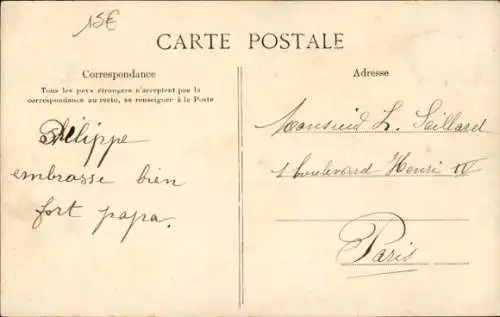 15€
CARTE POSTALE
Correspondance
Tous les pays étrangers n'acceptent pas la
correspondance au recto, se renseigner à la Poste
Philippe
embrasse bien
fort papa.
Adresse
Monsieur L. Saillard
1 boulevard Henri IV
Paris